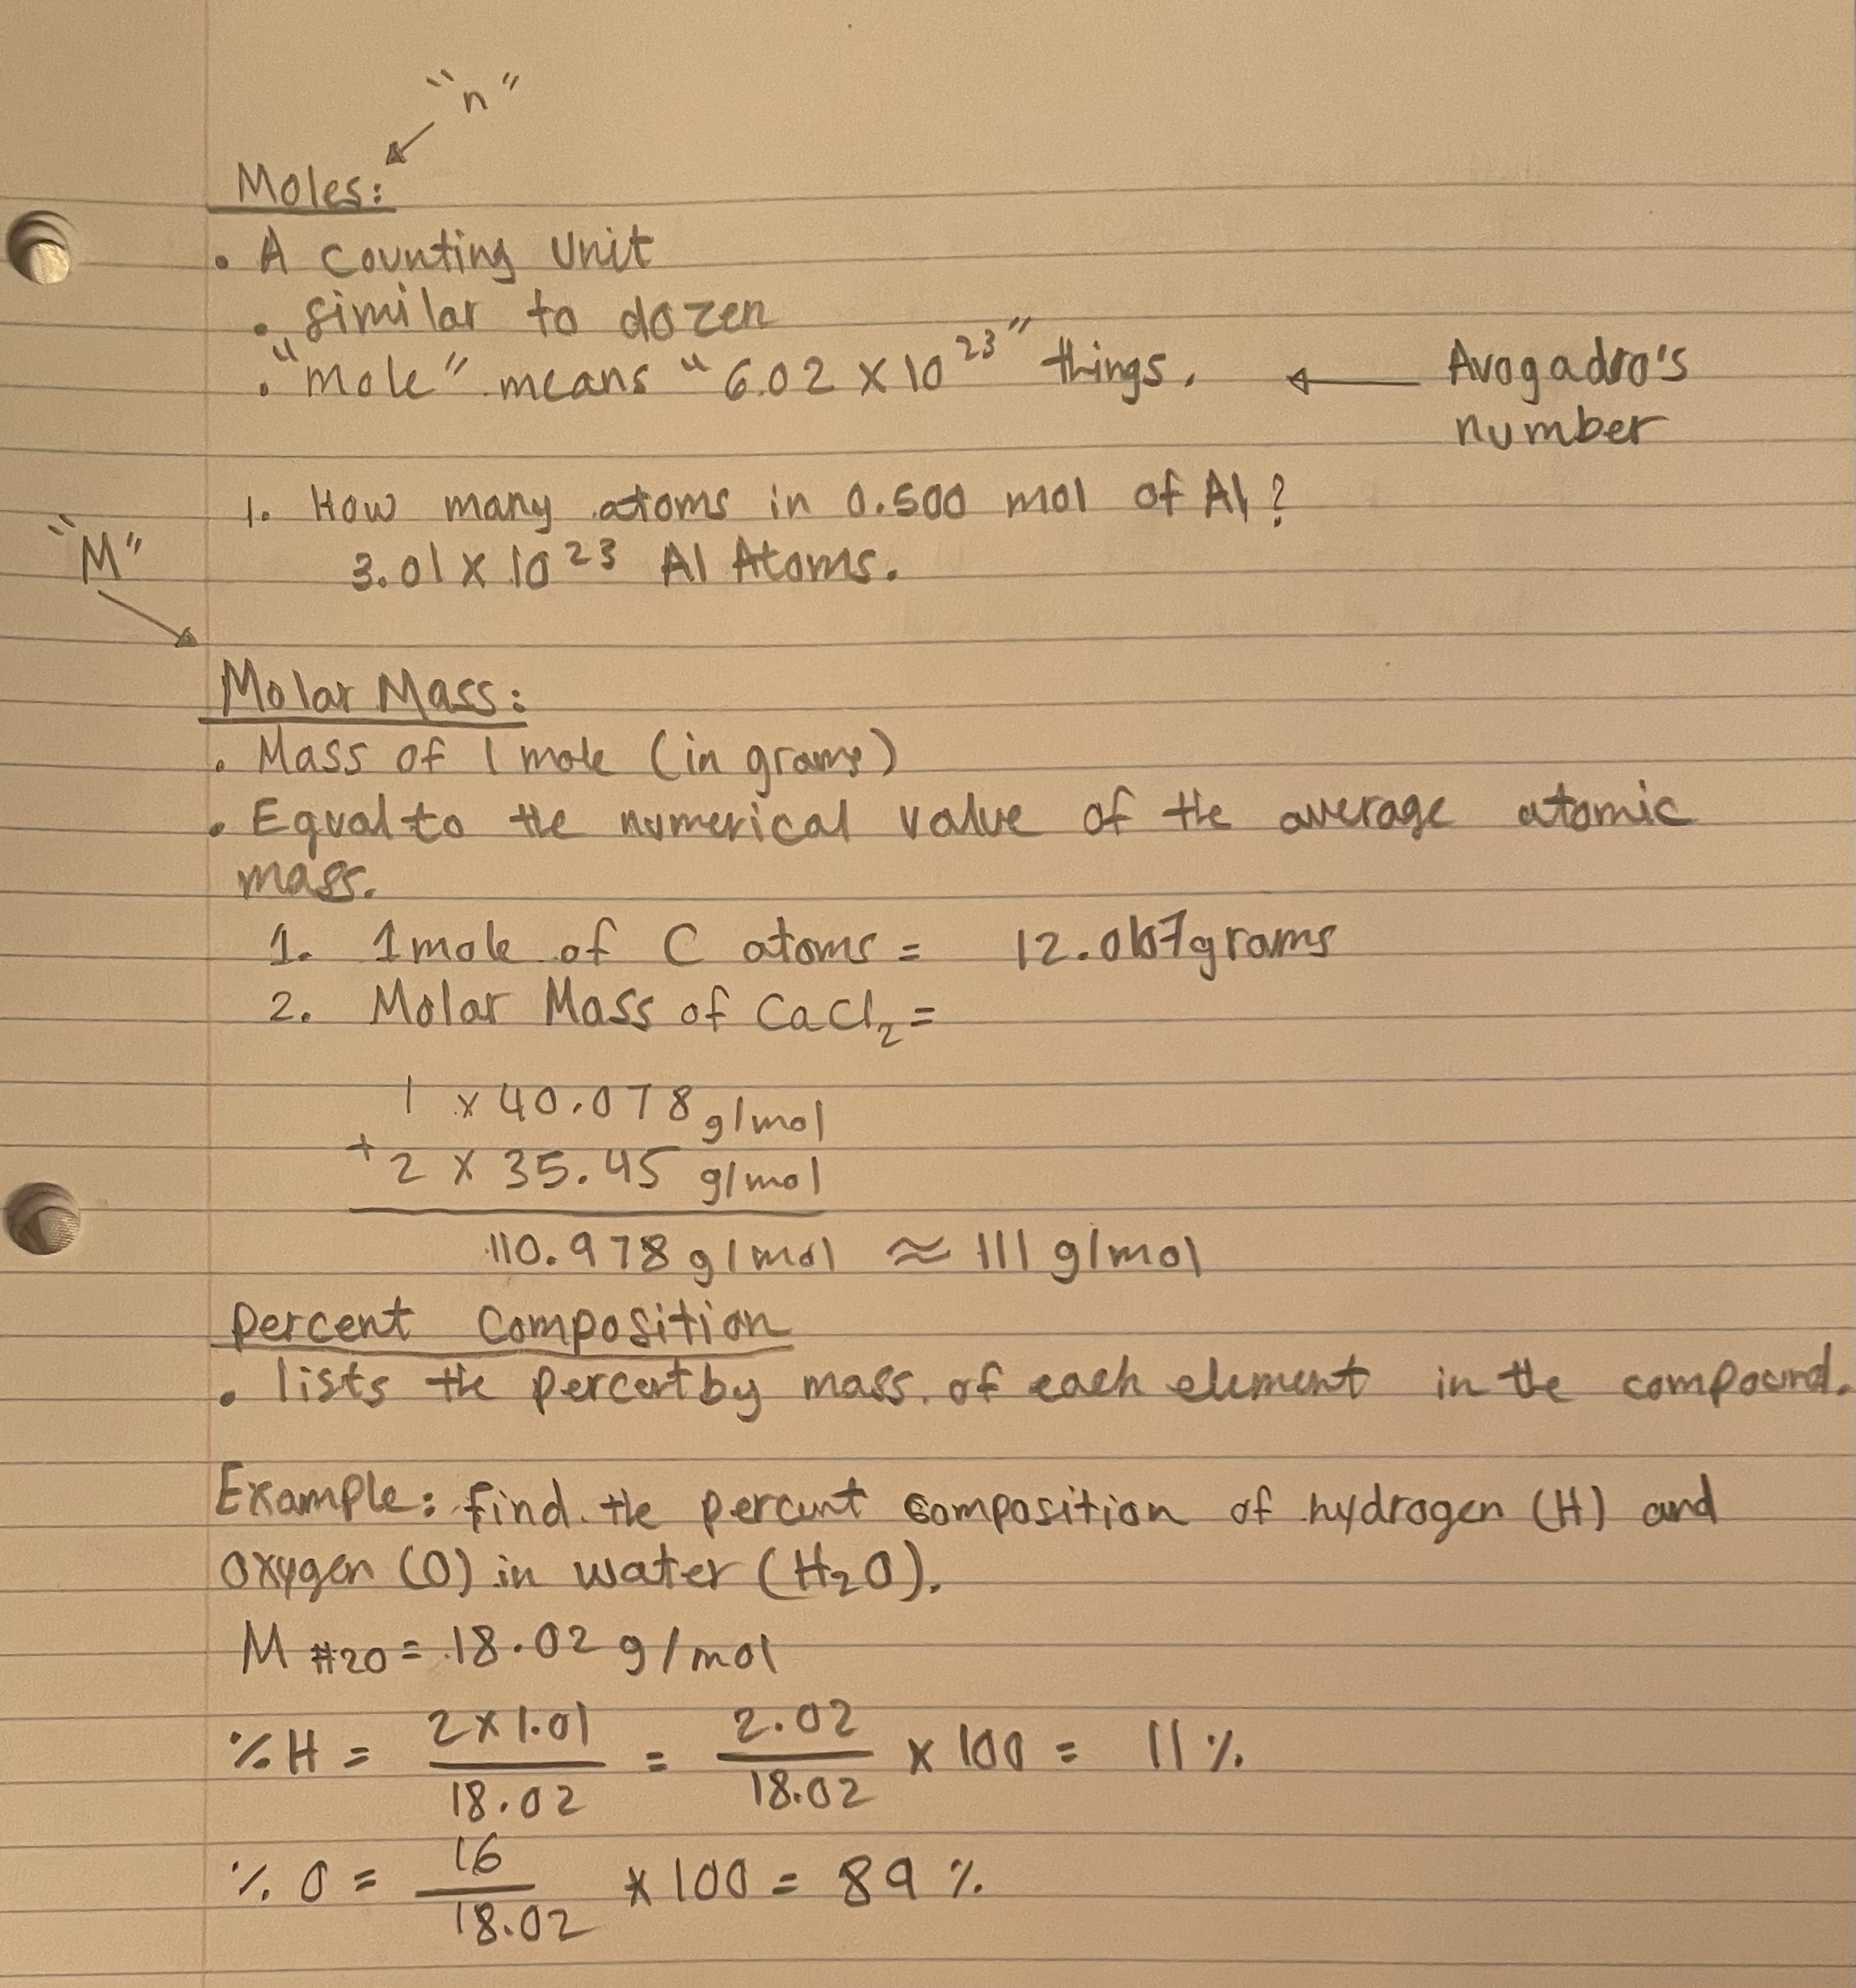 "n"
Moles:
• A counting unit
• similar to dozen
• "mole" means "6.02 x 10²³" things. ← Avogadro's
number
1. How many atoms in 0.500 mol of Al?
3.01 x 10²³ Al Atoms.
"M"
Molar Mass:
• Mass of 1 mole (in grams)
• Equal to the numerical value of the average atomic
mass.
1. 1 mole of C atoms = grams
2. Molar Mass of CaCl₂ =
1 x 40.078 g/mol
+ 2 x 35.45 g/mol
110.978 g/mol ≈ 111 g/mol
Percent Composition
• lists the percent by mass of each element in the compound.
Example: find the percent composition of hydrogen (H) and
oxygen (O) in water (H₂O).
M H₂O = 18.02 g/mol
% H = 2 x 1.01 / 18.02 = 2.02 / 18.02 x 100 = 11 %
% O = 16 / 18.02 x 100 = 89 %